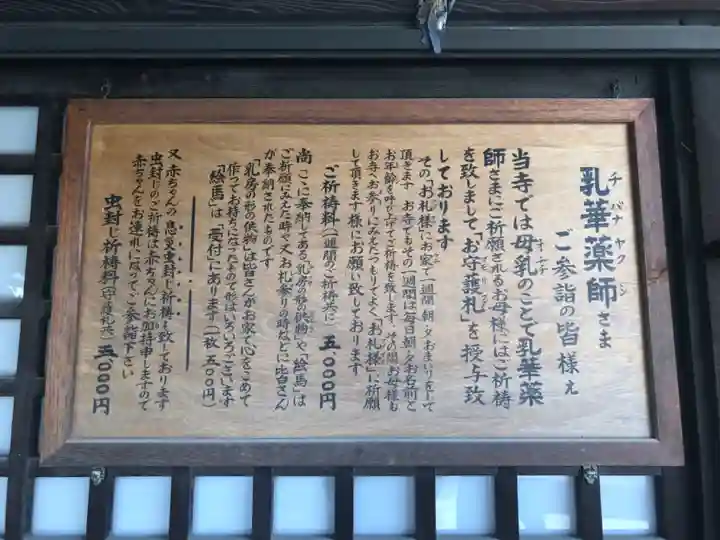 乳華薬師さま
チバナヤクシ
ご参詣の皆様え
当寺では母乳のことで乳華薬
師さまにご祈願されるお母様にはご祈祷
を致しまして「お守護札」を授与致
しております
そのお札様にお家で一週間朝・夕おまいりをして
頂きます お寺でもその一週間は毎日朝・夕お名前と
お年齢を呼び上げてご祈祷を致します その間お母様も
お寺へお参りにみえたつもりでよく「お札様」に祈願
して頂きます様にお願い致しております
ご祈祷料(一週間のご祈祷共に) 五、000円
尚 ここに奉納してある「乳房の形の供物」や「絵馬」は
ご祈願にみえた時や又お札参りの時などに皆さん
が奉納されたものです
「乳房の形の供物」は皆さんがお家で心をこめて
作ってお持ちになったもので形はいろいろございます
「絵馬」は「受付」にあります(一枚 五00円)
又 赤ちゃんの悪災虫封じ祈祷も致しております
虫封じのご祈祷は赤ちゃんにお加持申しますので
赤ちゃんをお連れになってご参詣下さい
虫封じ祈祷料(守護札共) 三、000円